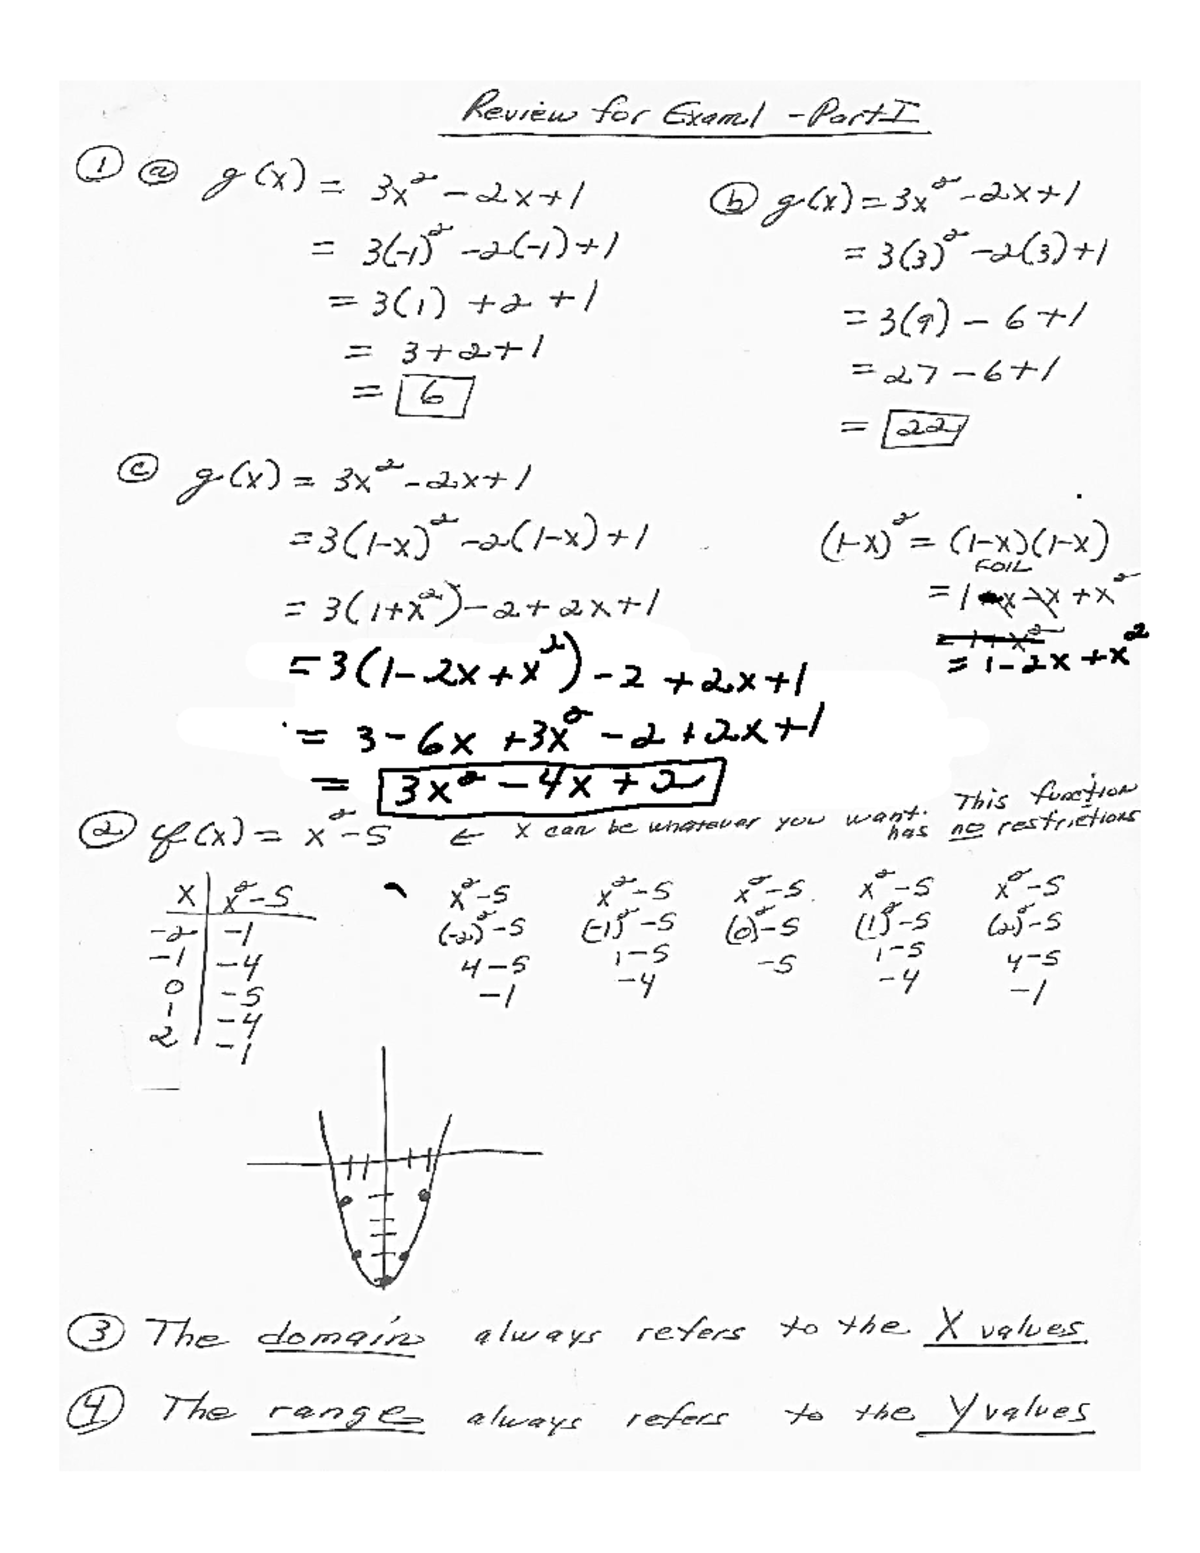 Review for Exam 1 - Part I
① ⓐ g(x) = 3x² - 2x + 1
= 3(-1)² - 2(-1) + 1
= 3(1) + 2 + 1
= 3 + 2 + 1
= 6
ⓑ g(x) = 3x² - 2x + 1
= 3(3)² - 2(3) + 1
= 3(9) - 6 + 1
= 27 - 6 + 1
= 22
ⓒ g(x) = 3x² - 2x + 1
= 3(1-x)² - 2(1-x) + 1
= 3(1+x²) - 2 + 2x + 1
= 3(1 - 2x + x²) - 2 + 2x + 1
= 3 - 6x + 3x² - 2 + 2x + 1
= 3x² - 4x + 2
(1-x)² = (1-x)(1-x)
FOIL
= 1 - x - x + x²
= 1 + x²
= 1 - 2x + x²
② f(x) = x² - 5 ← x can be whatever you want. This function
has no restrictions
x | x² - 5
-2 | -1
-1 | -4
0 | -5
1 | -4
2 | -1
x² - 5
(-2)² - 5
4 - 5
-1
x² - 5
(-1)² - 5
1 - 5
-4
x² - 5
(0)² - 5
-5
x² - 5
(1)² - 5
1 - 5
-4
x² - 5
(2)² - 5
4 - 5
-1
③ The domain always refers to the X values
④ The range always refers to the Y values